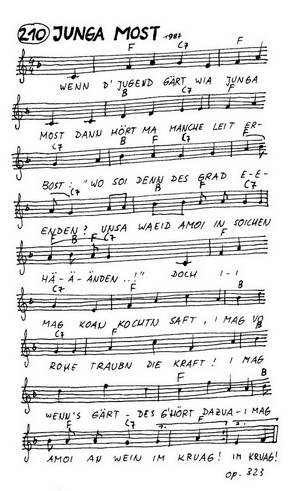 210 JUNGA MOST 1987
F C7 F
WENN D' JUGEND GÄRT WIA JUNGA
B C7 F
MOST DANN HÖRT MA MANCHE LEIT ER-
C7 B F
BOST: "WO SOI DENN DES GRAD E-E-
C7 B F
ENDEN? UNSA WAEID AMOI IN SOICHEN
F B F C7 F
HÄ-Ä-ÄNDEN..!" DOCH I-I
C7 F B
MAG KOAN KOCHTN SAFT, I MAG VO
C7 F B
ROHE TRAUBN DIE KRAFT! I MAG
F B
WENN'S GÄRT - DES G'HÖRT DAZUA - I MAG
F C7 F
AMOI AN WEIN IM KRUAG! IM KRUAG!
op. 323